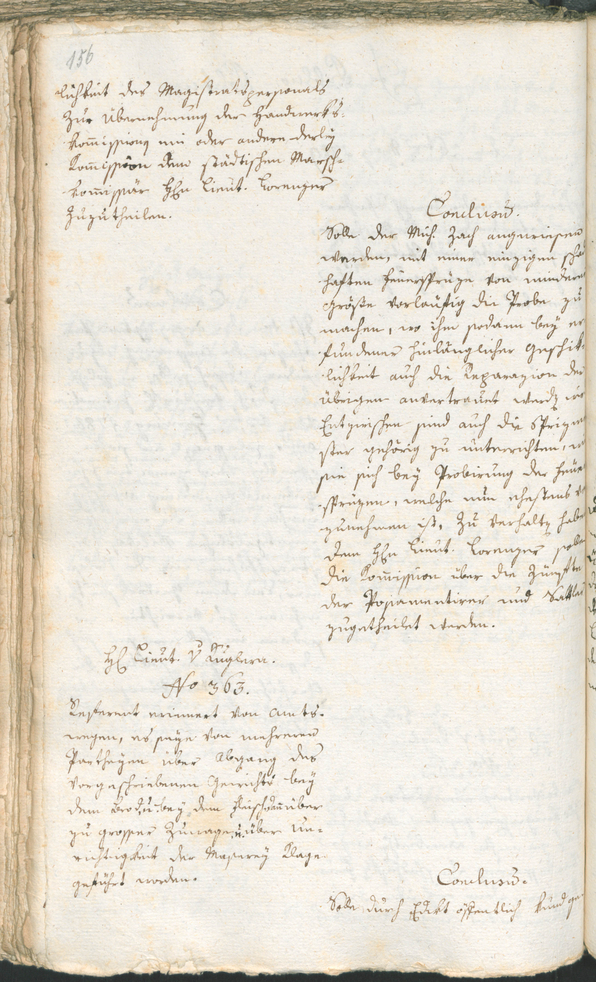 156
lichkeit des Magistratspersonals
zur Übernehmung der Handwerks-
kommissionen ein oder andere derley
Kommission dem städtischen Marsch-
kommissär Hn Lieut. Lorenzer
zuzutheilen.
Conclusum.
Solle der Mich. Zach angewiesen
werden, mit einer einzigen schad
haften Feuersprüze von minderer
Größe vorläufig die Probe zu
machen, wo ihm sodann bey er
fundener hinlänglicher Geschik
lichkeit auch die Reparazion der
übrigen anvertrauet werde
Entzwischen sind auch die Sprizen
ster gehörig zu unterrichten,
sie sich bey Probirung der Feuer
sprüzen, welche nun ehestens
zunehmen ist, zu verhalten haben
dem Hn Lieut. Lorenzer solle
die Kommission über die Zünfte
der Posamentirer und Sattler
zugetheilet werden.
Hn Lieut. v Kuglern.
No 363.
Referent erinnert von Amts-
wegen, es seye von mehreren
Partheyen über Abgang des
vorgeschriebenen Gewichts bey
dem Brod, u. bey dem Fleisch über
zu grosser Zuwage, u. über Un-
richtigkeit der Masserey Klage
geführt worden.
Conclusum.
Solle durch Edikt öffentlich kund ge-